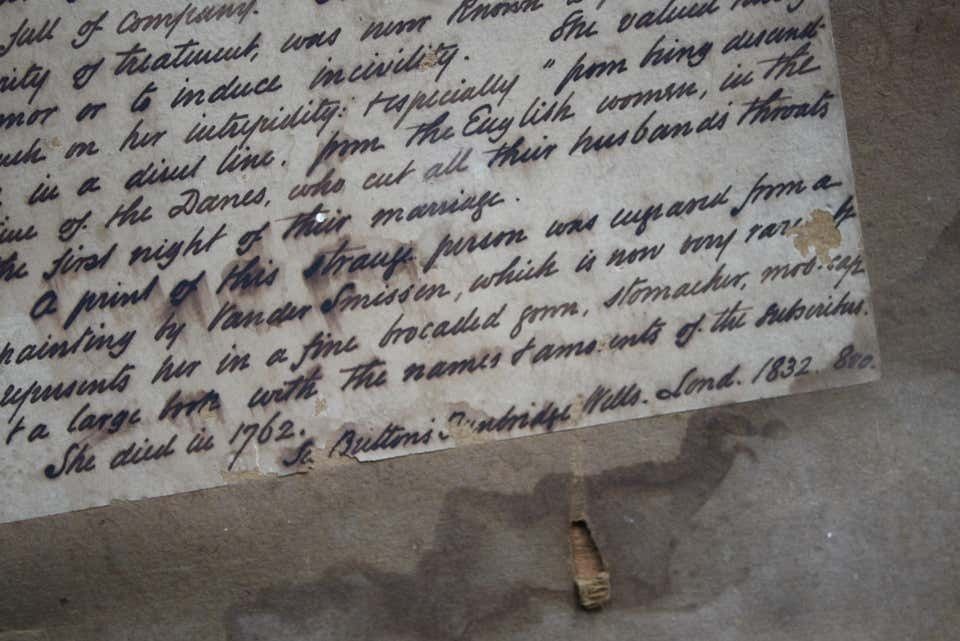 full of company.
rity of treatment, was never known
mor or to induce incivility. She valued
uch on her intrepidity: + especially " from being descend-
in a direct line. from the English women, in the
time of the Danes, who cut all their husbands throats
the first night of their marriage.
A print of this strange person was engraved from a
painting by Vander Smissen, which is now very rare. It
represents her in a fine brocaded gown, stomacher, mob-cap
+ a large book with the names & amo..ents of the subscribers.
She died in 1762.
Se Britton's Tunbridge Wells. Lond. 1832. 8vo.